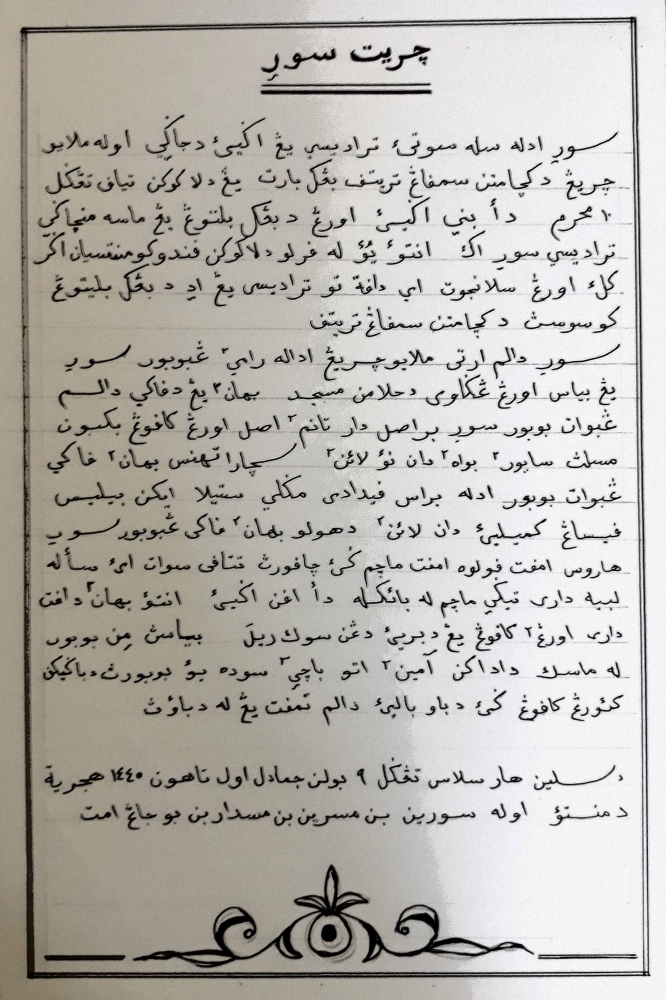 چريت سورِ
سورِ ادله سله سوتيء تراديسي يڠ اکيء دجاکِي اوله ملايو
چريڠ دکچامتن سمفاڠ تريتف بڠکل بارت يڠ دلاکوکن تياف تڠکل
١٠ محرم دأ بني اکيء اورڠ دبڠکل بليتوڠ يڠ ماسه منجاکي
تراديسي سورِ اک انتوء يُؤ له فرلو دلاکوکن فندوکومنتسيان اکر
کلء اورڠ سلانجوت اي دافة تو تراديسي يڠ ادِ دبڠکل بليتوڠ
کوسوسڽ دکچامتن سمفاڠ تريتف
سورِ دالم ارتي ملايوچريڠ اداله رامي٢ ڠبوبور سورِ
يڠ بياس اورڠ ڠکلاوي دحلامن مسجد بهان٢ يڠ دفاکي دالم
ڠبوات بوبور سورِ براصل دار تانم٢ اصل اورڠ کافوڠ بکبون
مسلڽ سايور٢ بواه٢ دان نؤ لائن٢ سچاراتهنس بهان٢ فاکي
ڠبوات بوبور ادله براس فيدادي مکلي ستيلا ايکن بيليس
فيساڠ کميليء دان لائن٢ دهولو بهان٢ فاکي ڠبوبور سورِ
هاروس امفت فولوه امفت ماچم کيء چافورڽ تتافي سوات ايء سأله
لبيه داري تيکي ماچم له بائکله دأ افن اکيء انتؤ بهان٢ دافت
داري اورڠ٢ کافوڠ يڠ دبريء دڠن سوک ريلَ بياسڽ مِن بوبور
له ماسک داداکن آمين٢ اتو باچي٢ سوده يؤ بوبورڽ دباکيکن
کئورڠ کافوڠ کيء دباو باليء دالم تمفت يڠ له دباوڽ
دسلين هار سلاس تڠکل ٩ بولن جمادل اول تاهون ١٤٤٠ هجرية
دمنتؤ اوله سورين بن مسرين بن مسدار بن بوجاڠ امت